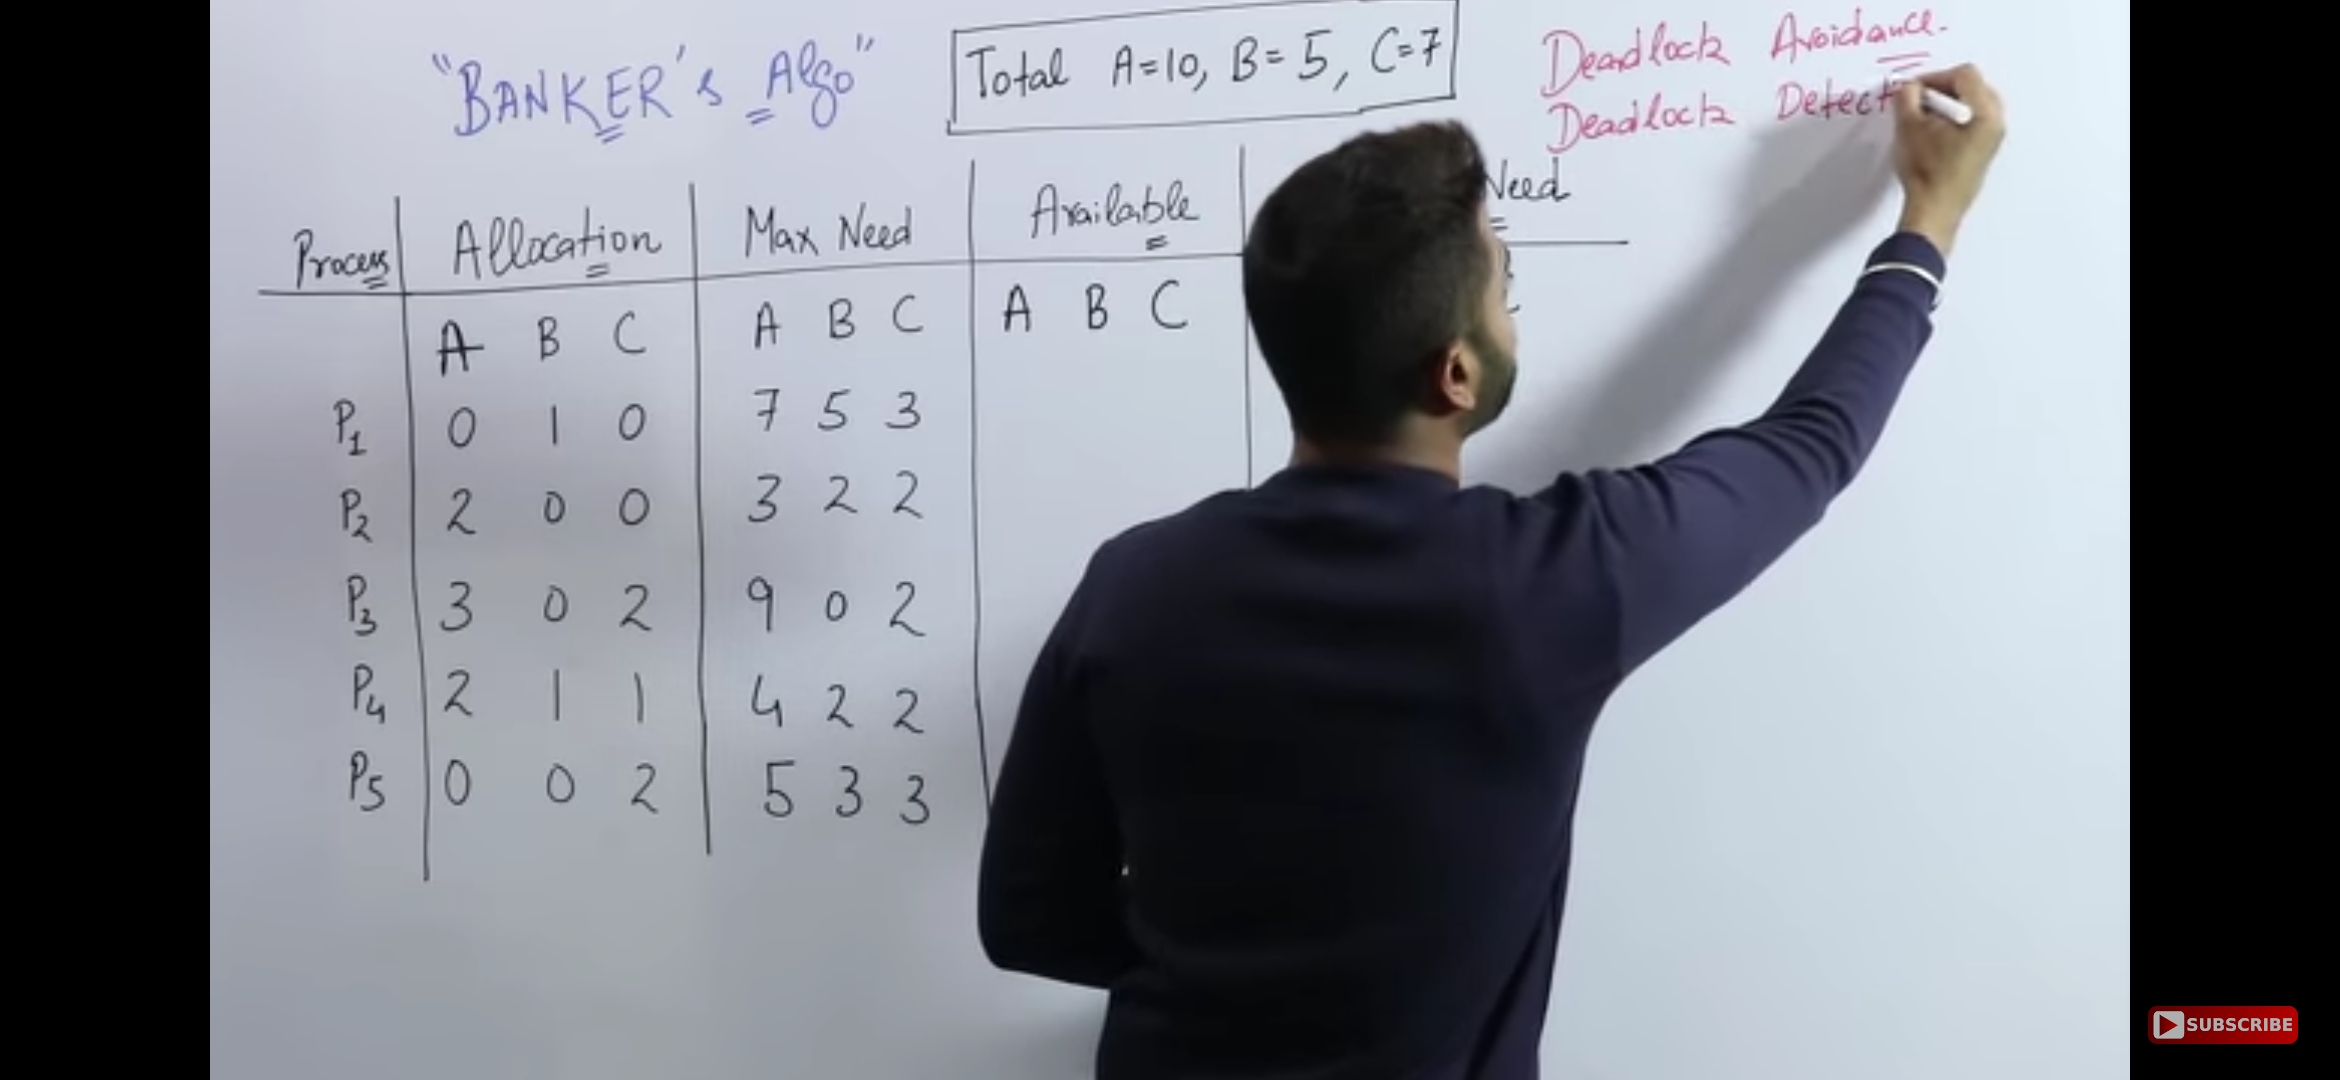 "BANKER's Algo"
Total A=10, B=5, C=7
Deadlock Avoidance.
Deadlock Detect
Process Allocation Max Need Available Need
A B C A B C A B C
P1 0 1 0 7 5 3
P2 2 0 0 3 2 2
P3 3 0 2 9 0 2
P4 2 1 1 4 2 2
P5 0 0 2 5 3 3
SUBSCRIBE